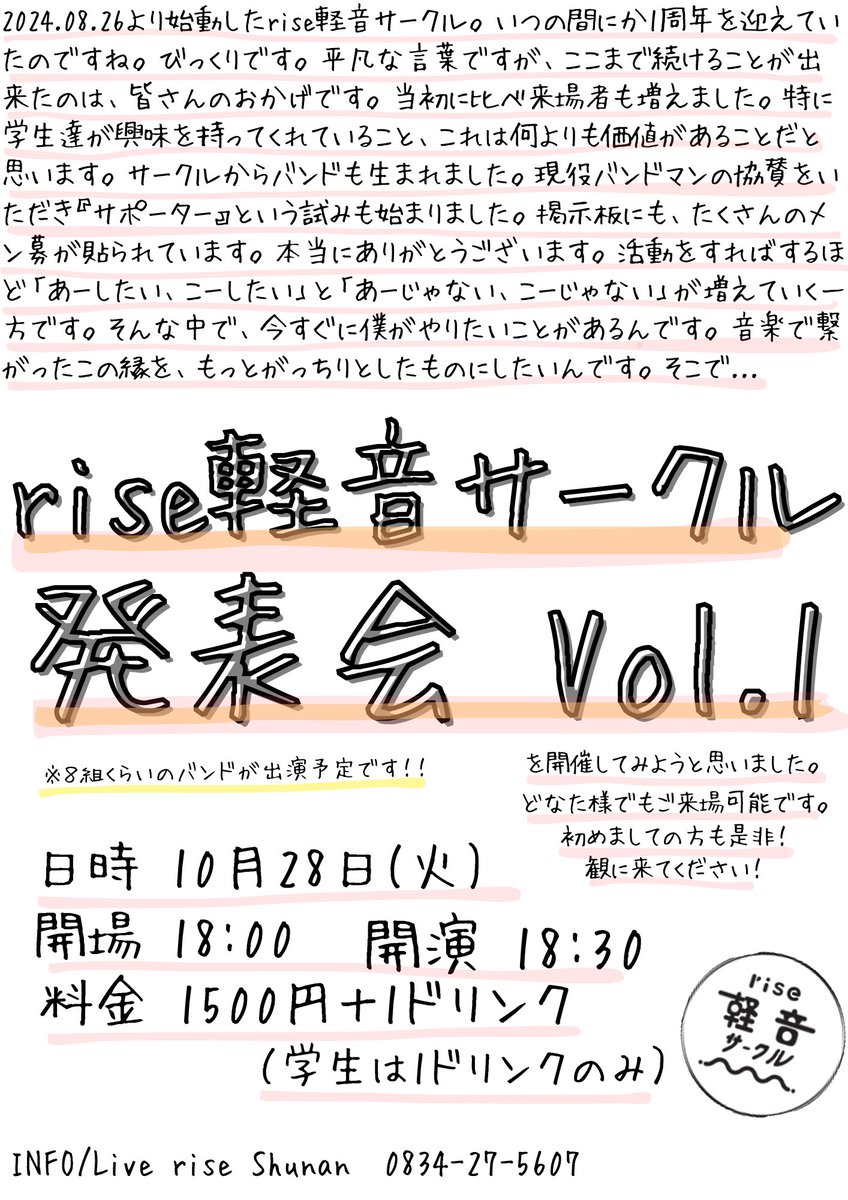 2024.08.26より始動したrise軽音サークル。いつの間にか1周年を迎えてい
たのですね。びっくりです。平凡な言葉ですが、ここまで続けることが出
来たのは、皆さんのおかげです。当初に比べ来場者も増えました。特に
学生達が興味を持ってくれていること、これは何よりも価値があることだと
思います。サークルからバンドも生まれました。現役バンドマンの協賛をい
ただき『サポーター』という試みも始まりました。掲示板にも、たくさんのメ
ン募が貼られています。本当にありがとうございます。活動をすればするほ
ど「あーしたい、こーしたい」と「あーじゃない、こーじゃない」が増えていく一
方です。そんな中で、今すぐに僕がやりたいことがあるんです。音楽で繋
がったこの縁を、もっとがっちりとしたものにしたいんです。そこで...
rise軽音サークル
発表会 Vol.1
※8組くらいのバンドが出演予定です!!
を開催してみようと思いました。
どなた様でもご来場可能です。
初めましての方も是非!
観に来てください!
日時 10月28日(火)
開場 18:00 開演 18:30
料金 1500円+1ドリンク
(学生は1ドリンクのみ)
rise
軽音
サークル
INFO/Live rise Shunan 0834-27-5607